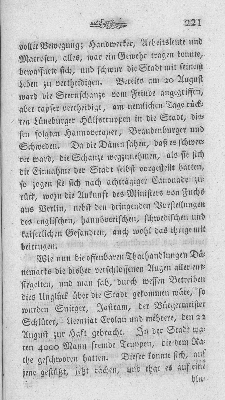 221
voller Bewegung; Handwerker, Arbeitsleute und
Matrosen, alles, was ein Gewehr tragen konnte,
bewaffnete sich, und schwur die Stadt mit seinem
Leben zu vertheidigen. Bereits am 20 August
ward die Sternschanze vom Feinde angegriffen,
aber tapfer vertheidigt, am nemlichen Tage rück-
ten Lüneburger Hülfstruppen in die Stadt, die-
sen folgten Hannoveraner, Brandenburger und
Schweden. Da die Dänen sahen, daß es schwe-
rer ward, die Schanze wegzunehmen, als sie sich
die Einnahme der Stadt selbst vorgestellt hatten,
so zogen sie sich nach achttägiger Canonade zu-
rück, wozu die Ankunft des Ministers von Fuchs
aus Berlin, nebst den dringenden Vorstellungen
des englischen, hannöverischen, schwedischen und
kaiserlichen Gesandten, auch wohl das ihrige mit
beitrugen.
Wie nun die offenbaren Thathandlungen Dä-
nemarks die bisher verschlossenen Augen aller ent-
siegelten, und man sah, durch wessen Betreiben
dies Unglück über die Stadt gekommen wäre, so
wurden Snitger, Jastram, der Bürgermeister
Schlüter, Licentiat und mehrere, den 22
August zur Haft gebracht. In der Stadt wa-
ren 4000 Mann fremde Truppen, die dem Ra-
the geschworen hatten. Dieser konnte sich, auf
jene gestützt, jetzt rächen, und that es auf eine
blu-